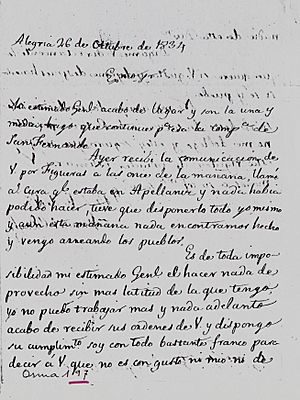 Alegria 26 de Octubre de 1834
Mi estimado Genl acabo de llegar y son la una y
media, tengo que continues pa toda la compa de
San Fernando
Ayer recibi la comunicacion de
V. por Figueras a las once de la mañana, llamé
al Cura ql estaba en Apellaniz y nada habia
podido hacer, tuve que disponerlo todo yo mismo
y aun esta mañana nada encontramos hecho
y vengo arreando los pueblos.
Es de toda impo-
sibilidad mi estimado Genl el hacer nada de
provecho sin mas latitud de la que tengo,
yo no puedo trabajar mas y nada adelanto
acabo de recibir sus ordenes de V. y dispongo
su cumplimto soy con todo bastante franco para
decir a V. que no es con gusto ni mio ni de
Osma 1.17